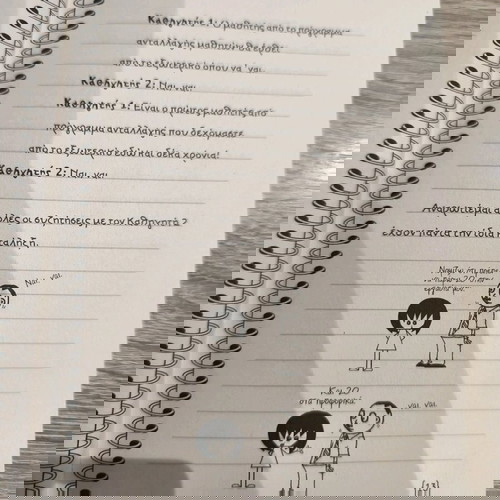 Καθηγητής 1: Ο μαθητής από το πρόγραμμα
ανταλλαγής μαθητών θα έρθει
από το εξωτερικό όπου να 'ναι.
Καθηγητής 2: Ναι, ναι.
Καθηγητής 1: Είναι ο πρώτος μαθητής από
πρόγραμμα ανταλλαγής που δεχόμαστε
από το εξωτερικό εδώ και δέκα χρόνια!
Καθηγητής 2: Ναι, ναι.
Αναρωτιέμαι αν
όλες οι συζητήσεις με τον Καθηγητή 2
έχουν πάντα την ίδια κατάληξη.
Νομίζω ότι πρέπει
να πάρω 20 στην
Ναι, ναι.
Και 20
στα προφορικά.
Ναι, ναι.
[13]